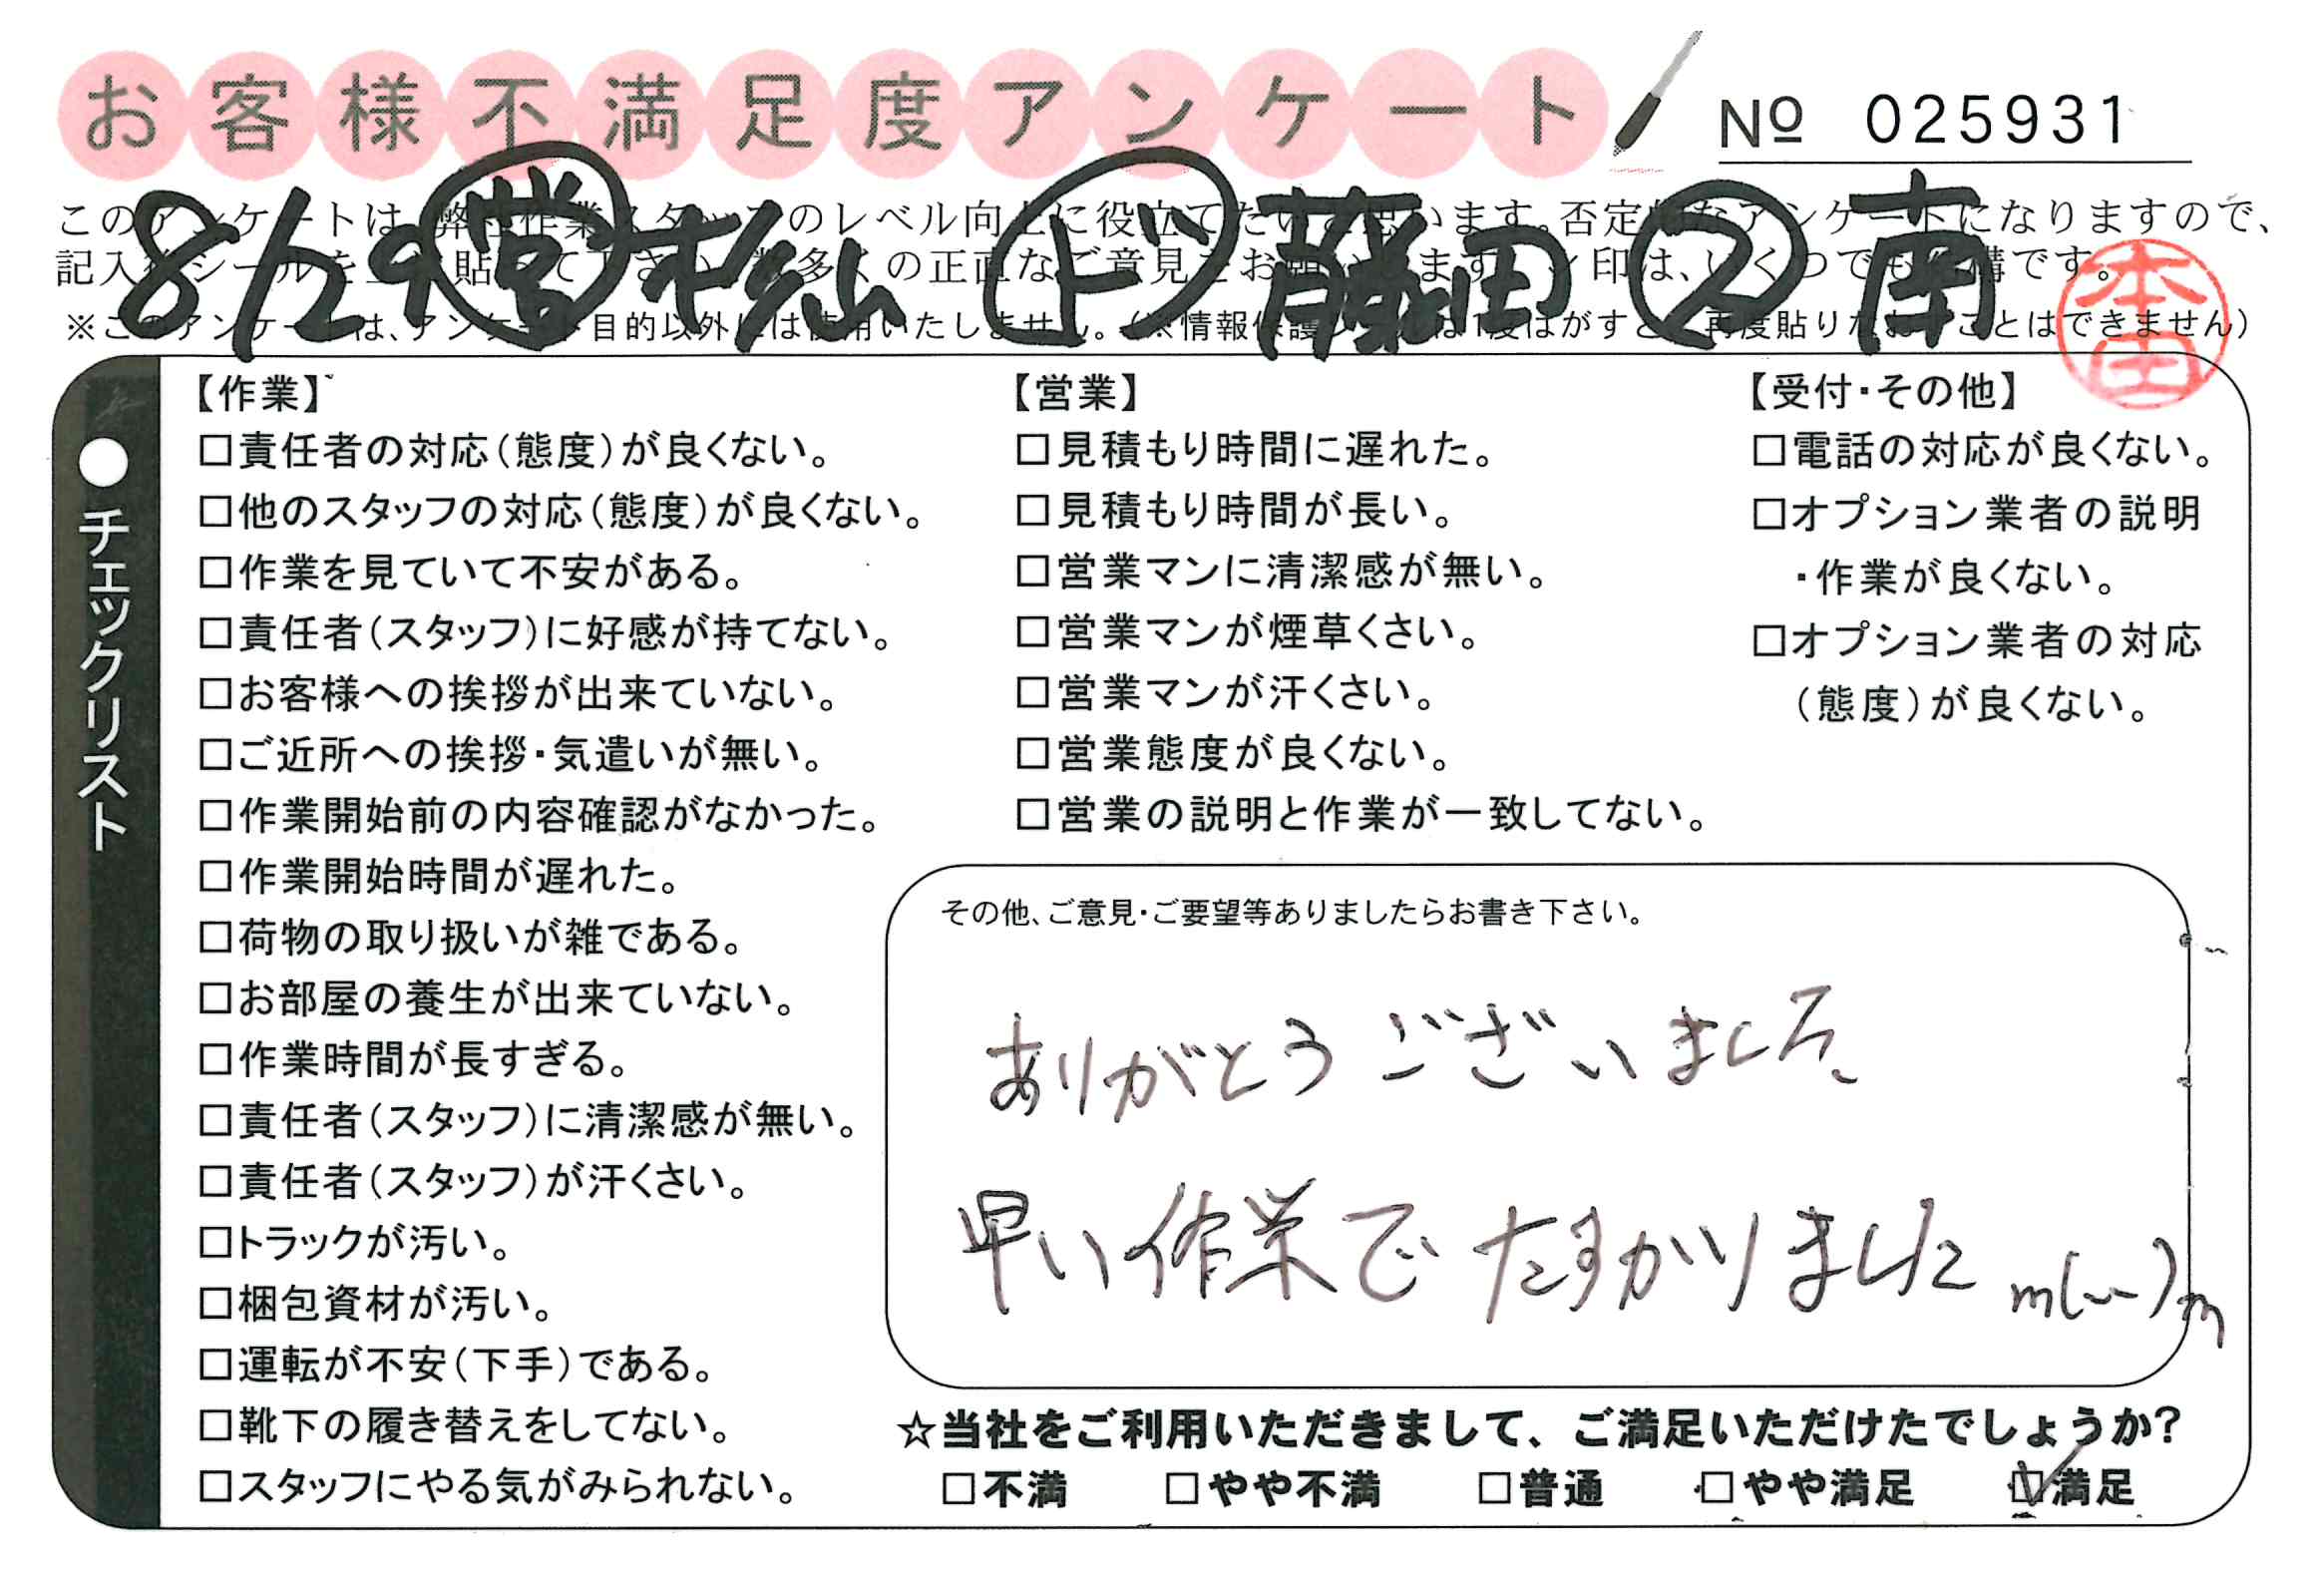 お客様不満足度アンケート
№ 025931
8/29 営 杉山 ド 藤田 ス 南
このアンケートは、弊社作業スタッフのレベル向上に役立てたいと思います。否定的なアンケートになりますので、
記入後シールを上に貼って下さい。数多くの正直なご意見をお願いします。レ印は、いくつでも結構です。
※このアンケートは、アンケート目的以外には使用いたしません。(※情報保護シールは1度はがすと、再度貼りなおすことはできません)
本田
●チェックリスト
【作業】
□責任者の対応(態度)が良くない。
□他のスタッフの対応(態度)が良くない。
□作業を見ていて不安がある。
□責任者(スタッフ)に好感が持てない。
□お客様への挨拶が出来ていない。
□ご近所への挨拶・気遣いが無い。
□作業開始前の内容確認がなかった。
□作業開始時間が遅れた。
□荷物の取り扱いが雑である。
□お部屋の養生が出来ていない。
□作業時間が長すぎる。
□責任者(スタッフ)に清潔感が無い。
□責任者(スタッフ)が汗くさい。
□トラックが汚い。
□梱包資材が汚い。
□運転が不安(下手)である。
□靴下の履き替えをしてない。
□スタッフにやる気がみられない。
【営業】
□見積もり時間に遅れた。
□見積もり時間が長い。
□営業マンに清潔感が無い。
□営業マンが煙草くさい。
□営業マンが汗くさい。
□営業態度が良くない。
□営業の説明と作業が一致してない。
【受付・その他】
□電話の対応が良くない。
□オプション業者の説明
・作業が良くない。
□オプション業者の対応
(態度)が良くない。
その他、ご意見・ご要望等ありましたらお書き下さい。
ありがとうございました
早い作業でたすかりました m(__)m
☆当社をご利用いただきまして、ご満足いただけたでしょうか?
□不満 □やや不満 □普通 □やや満足 ☑満足